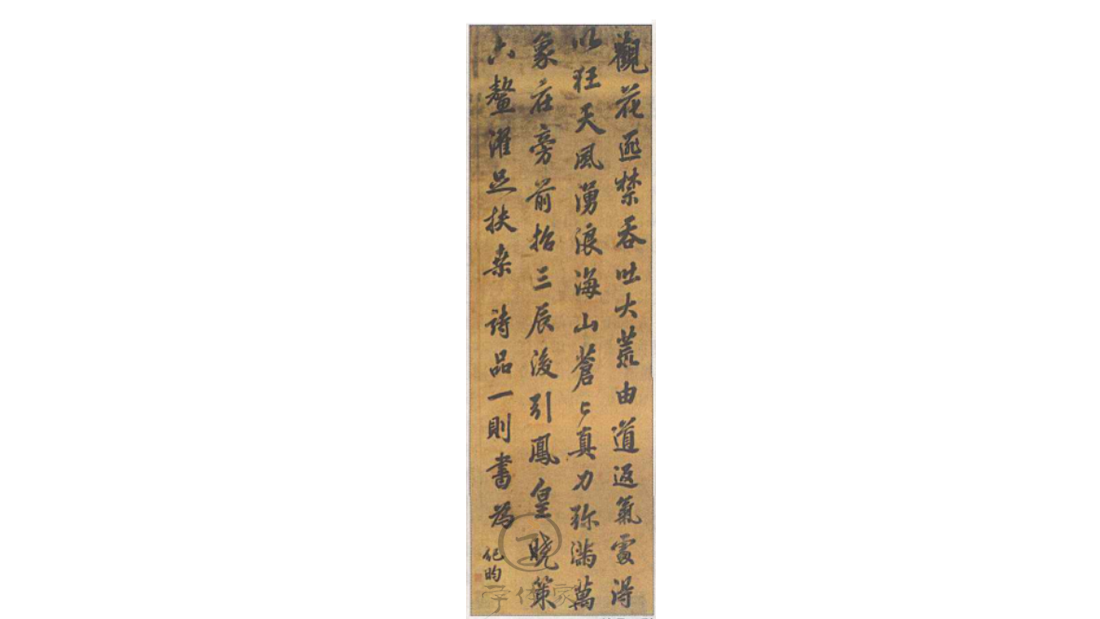 觀花匪禁吞吐大荒由道返氣處得
以狂天風湧浪海山蒼〻真力弥滿萬
象在旁前招三辰後引鳳皇曉策
六鰲濯足扶桒 詩品一則書為
紀昀
字体家